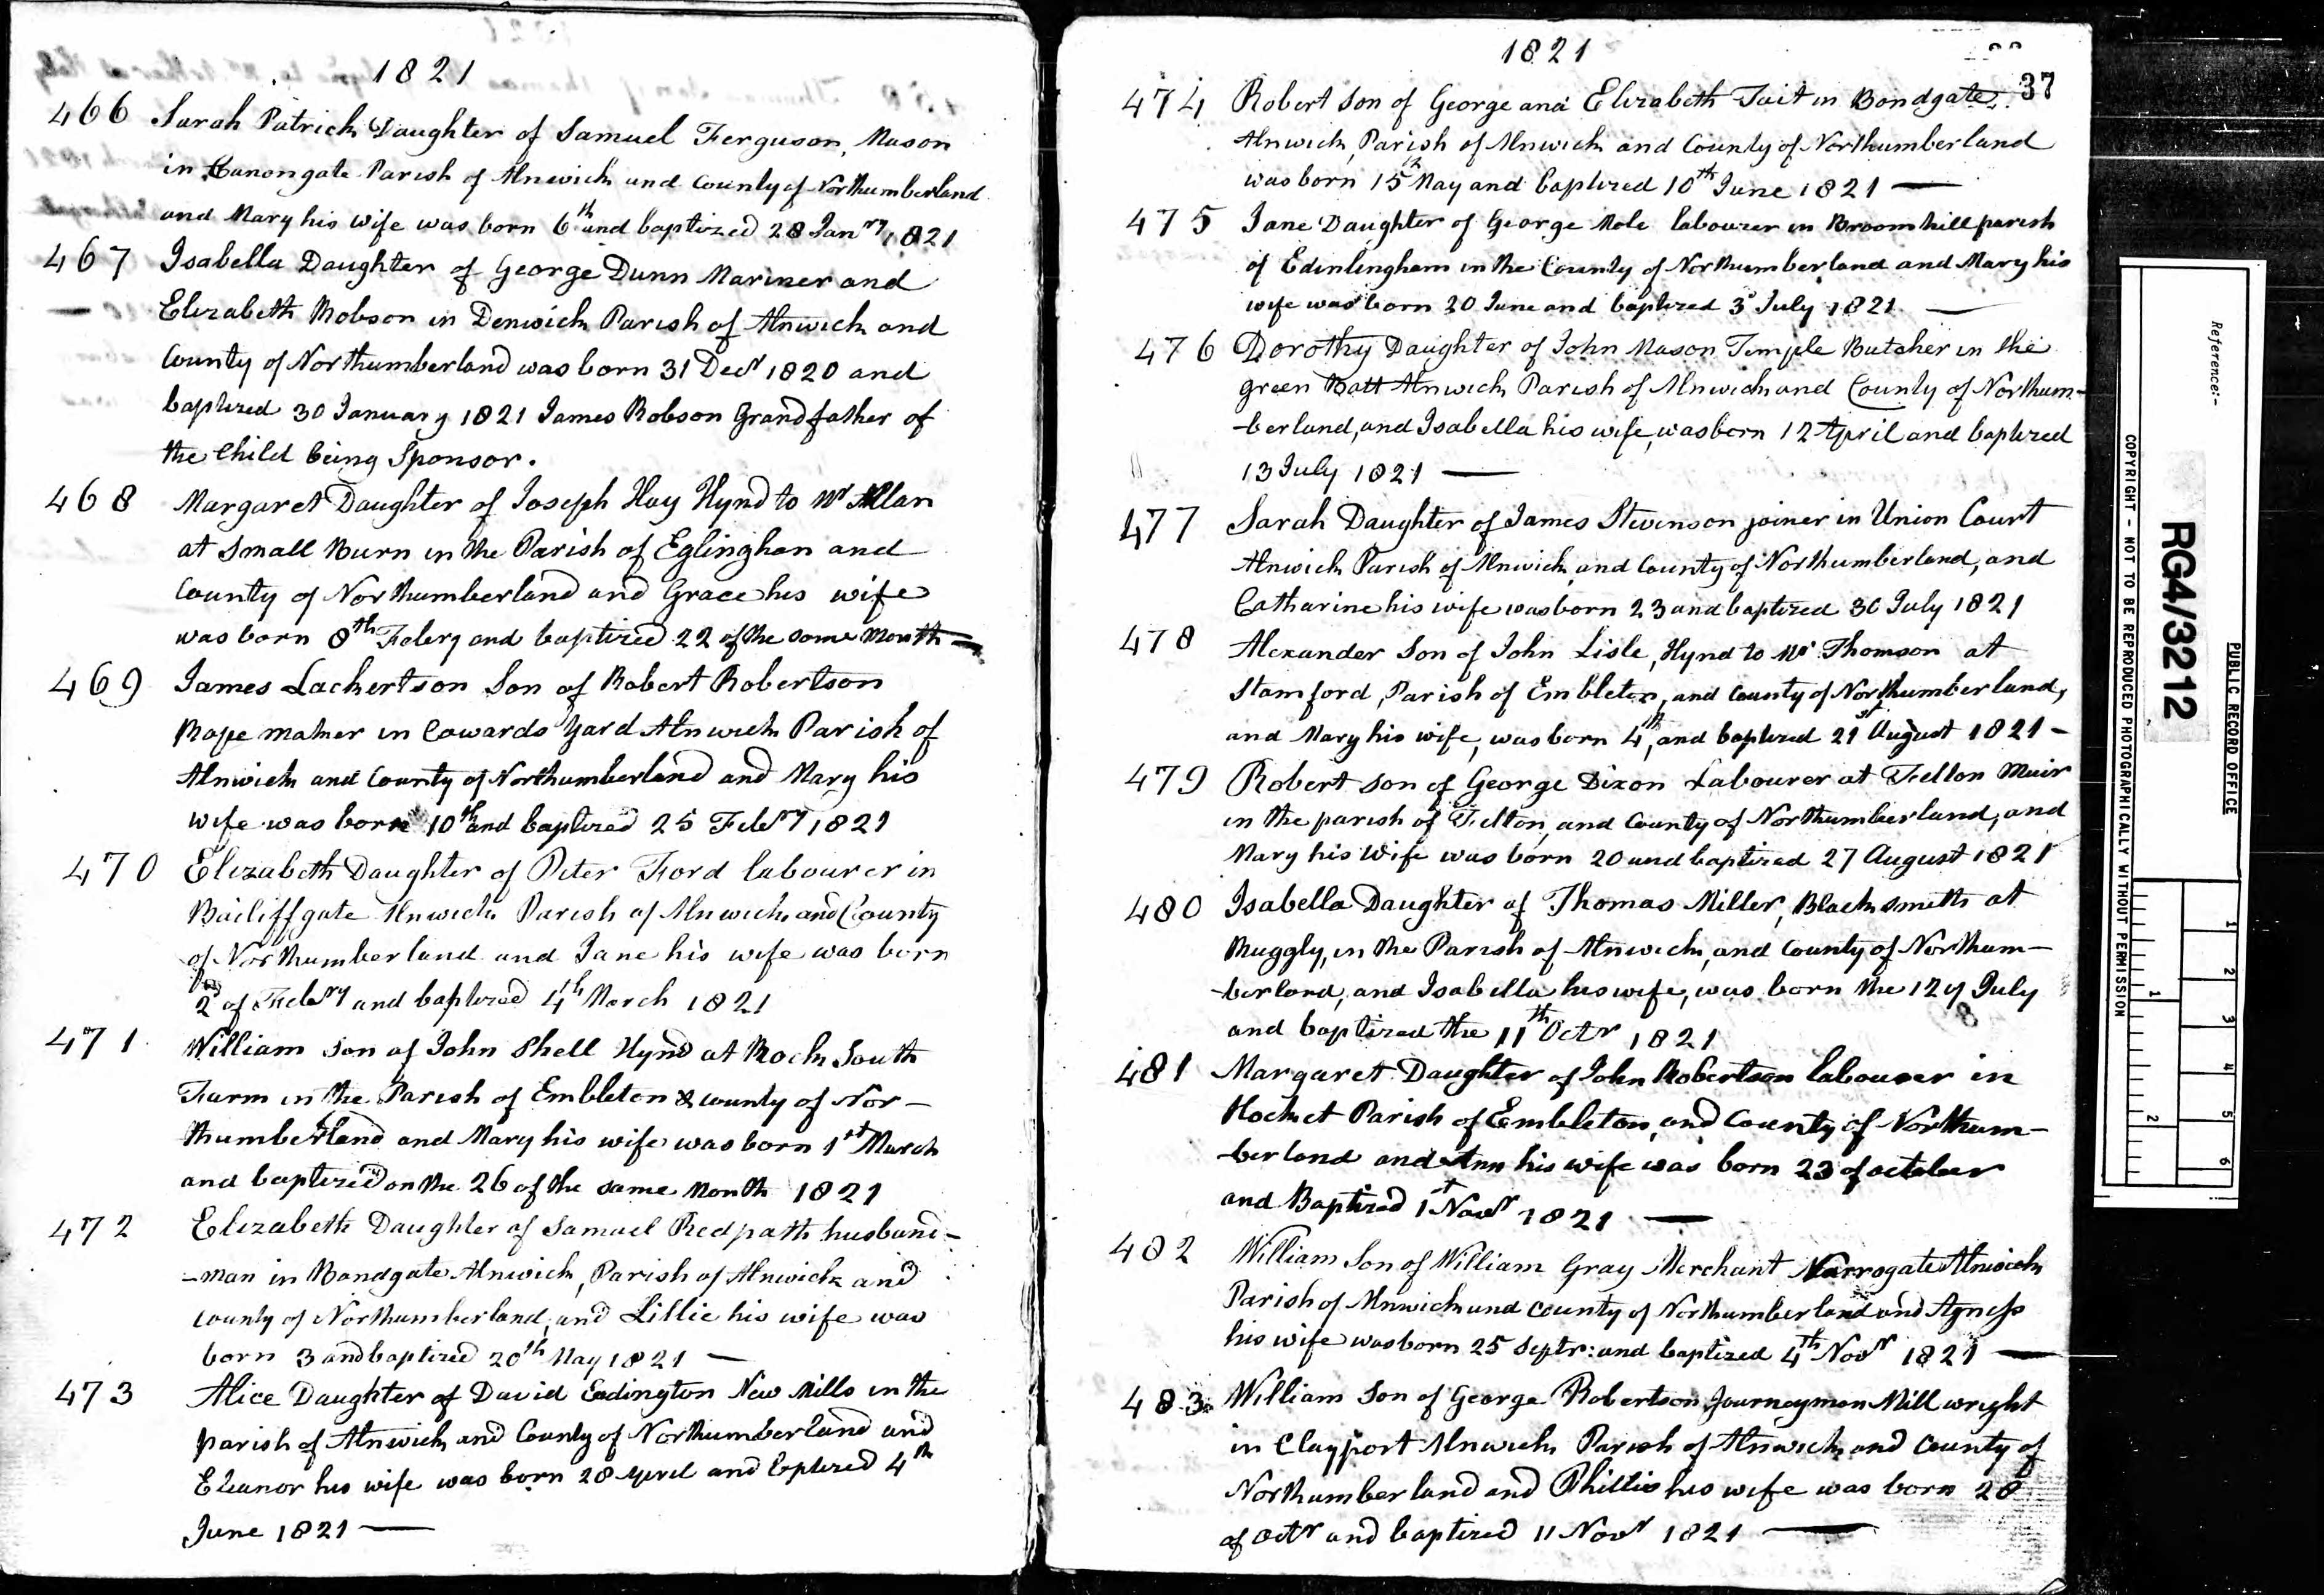 1821
466 Sarah Patrick Daughter of Samuel Ferguson, Mason
in Canongate Parish of Alnwick and County of Northumberland
and Mary his wife was born 6th and baptized 28 Janry 1821
467 Isabella Daughter of George Dunn Mariner and
Elizabeth Robson in Denwick Parish of Alnwick and
County of Northumberland was born 31 Decr 1820 and
baptized 30 January 1821 James Robson Grandfather of
the Child being Sponsor.
468 Margaret Daughter of Joseph Hay Hynd to Mr Allan
at Small Burn in the Parish of Eglinghan and
County of Northumberland and Grace his wife
was born 8th Febry and baptized 22 of the same Month
469 James Lackertson Son of Robert Robertson
Rope maker in Cowards Yard Alnwick Parish of
Alnwick and County of Northumberland and Mary his
wife was born 10th and baptized 25 Febry 1821
470 Elizabeth Daughter of Peter Ford labourer in
Bailiffgate Alnwick Parish of Alnwick and County
of Northumberland and Jane his wife was born
2nd of Febry and baptized 4th March 1821
471 William Son of John Shell Hynd at Rock South
Farm in the Parish of Embleton & county of Nor-
thumberland and Mary his wife was born 1st March
and baptized on the 26 of the same Month 1821
472 Elizabeth Daughter of Samuel Redpath husband-
-man in Bondgate Alnwick, Parish of Alnwick and
county of Northumberland, and Lillie his wife was
born 3 and baptized 20th May 1821
473 Alice Daughter of David Eadington New Mills in the
parish of Alnwick and County of Northumberland and
Eleanor his wife was born 28 April and bptized 4th
June 1821
1821
37
474 Robert Son of George and Elizabeth Tait in Bondgate
Alnwick, Parish of Alnwick and County of Northumberland
was born 15th May and baptized 10th June 1821
475 Jane Daughter of George Mole labourer in Broomhill parish
of Edenlingham in the County of Northumberland and Mary his
wife was born 20 June and baptized 3d July 1821
476 Dorothy Daughter of John Mason Temple Butcher in the
green Batt Alnwick Parish of Alnwick and County of Northum-
-berland, and Isabella his wife, was born 12 April and baptized
13 July 1821
477 Sarah Daughter of James Stevenson joiner in Union Court
Alnwick Parish of Alnwick and County of Northumberland, and
Catharine his wife was born 23 and baptized 30 July 1821
478 Alexander Son of John Lisle, Hynd to Mr Thomson at
Stamford, Parish of Embleton, and County of Northumberland,
and Mary his wife, was born 4th, and baptized 21st August 1821
479 Robert Son of George Dixon Labourer at Felton Muir
in the parish of Felton, and County of Northumberland, and
Mary his Wife was born 20 and baptized 27 August 1821
480 Isabella Daughter of Thomas Miller, Blacksmith at
Ruggly, in the Parish of Alnwick, and County of Northum-
-berland, and Isabella his wife, was born the 12 of July
and baptized the 11th Octr 1821
481 Margaret Daughter of John Robertson labourer in
Hocket Parish of Embleton, and County of Northum-
-berland and Ann his wife was born 23 of october
and Baptized 1st Novr 1821
482 William Son of William Gray Merchant Narrogate Alnwick
Parish of Alnwick and County of Northumberland and Agness
his wife was born 25 Septr: and baptized 4th Novr 1821
483 William Son of George Robertson Journeyman Mill wright
in Clayport Alnwick Parish of Alnwick and County of
Northumberland and Phillis his wife was born 28
of Octr and baptized 11 Novr 1821
Reference:-
RG4/3212
PUBLIC RECORD OFFICE
COPYRIGHT - NOT TO BE REPRODUCED PHOTOGRAPHICALLY WITHOUT PERMISSION
1 2 3 4 5 6
1 2